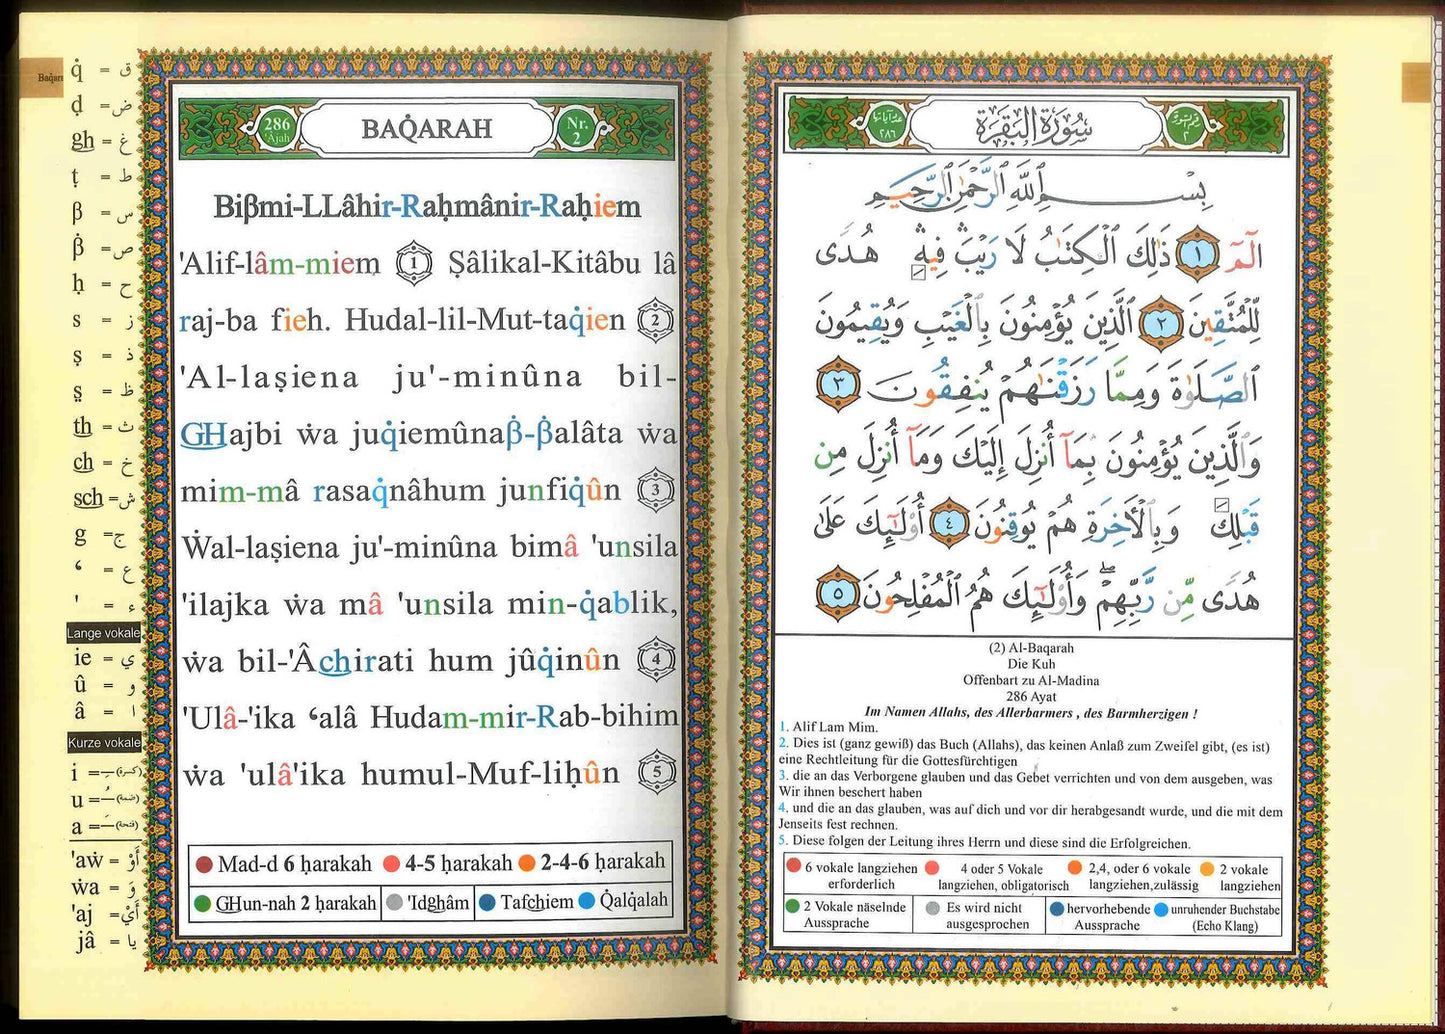 Baqara
q̇ = ق
ḍ = ض
gh = غ
ṭ = ط
β = س
β̇ = ص
ḥ = ح
s = ز
ṣ = ذ
ṣ̤ = ظ
th = ث
ch = خ
sch = ش
g = ج
ʻ = ع
' = ء
Lange vokale
ie = ي
û = و
â = ا
Kurze vokale
i = ـِ (كسرة)
u = ـُ (ضمة)
a = ـَ (فتحة)
'aẇ = أَوْ
ẇa = وَ
'aj = أَيْ
jâ = يا
286 'Ajah
BAQ̇ARAH
Nr. 2
Biβmi-LLâhir-Raḥmânir-Raḥiem
'Alif-lâm-miem 1 Ṣâlikal-Kitâbu lâ
raj-ba fieh. Hudal-lil-Mut-taq̇ien 2
'Al-laṣiena ju'-minûna bil-
GHajbi ẇa juq̇iemûnaβ̇-β̇alâta ẇa
mim-mâ rasaq̇nâhum junfiq̇ûn 3
Ẇal-laṣiena ju'-minûna bimâ 'unsila
'ilajka ẇa mâ 'unsila min-q̇ablik,
ẇa bil-'Âchirati hum jûq̇inûn 4
'Ulâ-'ika ʻalâ Hudam-mir-Rab-bihim
ẇa 'ulâ'ika humul-Muf-liḥûn 5
Mad-d 6 ḥarakah 4-5 ḥarakah 2-4-6 ḥarakah
GHun-nah 2 ḥarakah 'Idghâm Tafchiem Q̇alq̇alah
عدد آياتها ٢٨٦
سُورَةُ البَقَرَة
٢
بِسْمِ ٱللَّهِ ٱلرَّحْمَٰنِ ٱلرَّحِيمِ
الٓمٓ ١ ذَٰلِكَ ٱلْكِتَٰبُ لَا رَيْبَ ۛ فِيهِ ۛ هُدًى
لِّلْمُتَّقِينَ ٢ ٱلَّذِينَ يُؤْمِنُونَ بِٱلْغَيْبِ وَيُقِيمُونَ
ٱلصَّلَوٰةَ وَمِمَّا رَزَقْنَٰهُمْ يُنفِقُونَ ٣
وَٱلَّذِينَ يُؤْمِنُونَ بِمَآ أُنزِلَ إِلَيْكَ وَمَآ أُنزِلَ مِن
قَبْلِكَ وَبِٱلْءَاخِرَةِ هُمْ يُوقِنُونَ ٤ أُو۟لَٰٓئِكَ عَلَىٰ
هُدًى مِّن رَّبِّهِمْ ۖ وَأُو۟لَٰٓئِكَ هُمُ ٱلْمُفْلِحُونَ ٥
(2) Al-Baqarah
Die Kuh
Offenbart zu Al-Madina
286 Ayat
Im Namen Allahs, des Allerbarmers , des Barmherzigen !
1. Alif Lam Mim.
2. Dies ist (ganz gewiß) das Buch (Allahs), das keinen Anlaß zum Zweifel gibt, (es ist)
eine Rechtleitung für die Gottesfürchtigen
3. die an das Verborgene glauben und das Gebet verrichten und von dem ausgeben, was
Wir ihnen beschert haben
4. und die an das glauben, was auf dich und vor dir herabgesandt wurde, und die mit dem
Jenseits fest rechnen.
5. Diese folgen der Leitung ihres Herrn und diese sind die Erfolgreichen.
6 vokale langziehen 4 oder 5 Vokale 2,4, oder 6 vokale 2 vokale
erforderlich langziehen, obligatorisch langziehen,zulässig langziehen
2 Vokale näselnde Es wird nicht hervorhebende unruhender Buchstabe
Aussprache ausgesprochen Aussprache (Echo Klang)